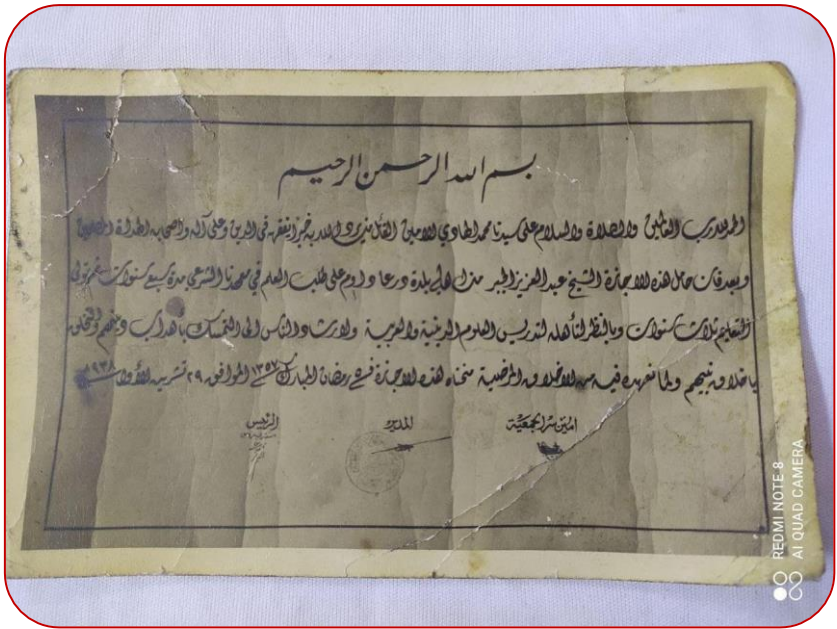 بسم الله الرحمن الرحيم
الحمد لله رب العالمين والصلاة والسلام على سيدنا محمد الهادي الامين القائل من يرد الله به خيرا يفقهه في الدين وعلى آله واصحابه الهداة المهديين
وبعد فان حامل هذه الاجازة الشيخ عبد العزيز الجبر من اهالي بلدة درعا داوم على طلب العلم في معهدنا الشرعي مدة سبع سنوات ثم تولى
التعليم ثلاث سنوات وبالنظر لتأهله لتدريس العلوم الدينية والعربية ولارشاد الناس الى التمسك بأهداب دينهم والتخلق
باخلاق نبيهم ولما نعهده فيه من الاخلاق المرضية منحناه هذه الاجازة في رمضان المبارك سنة ١٣٥٧ الموافق ٢٩ تشرين الأول سنة ١٩٣٨
امين سر الجمعية المدير الرئيس
REDMI NOTE 8
AI QUAD CAMERA